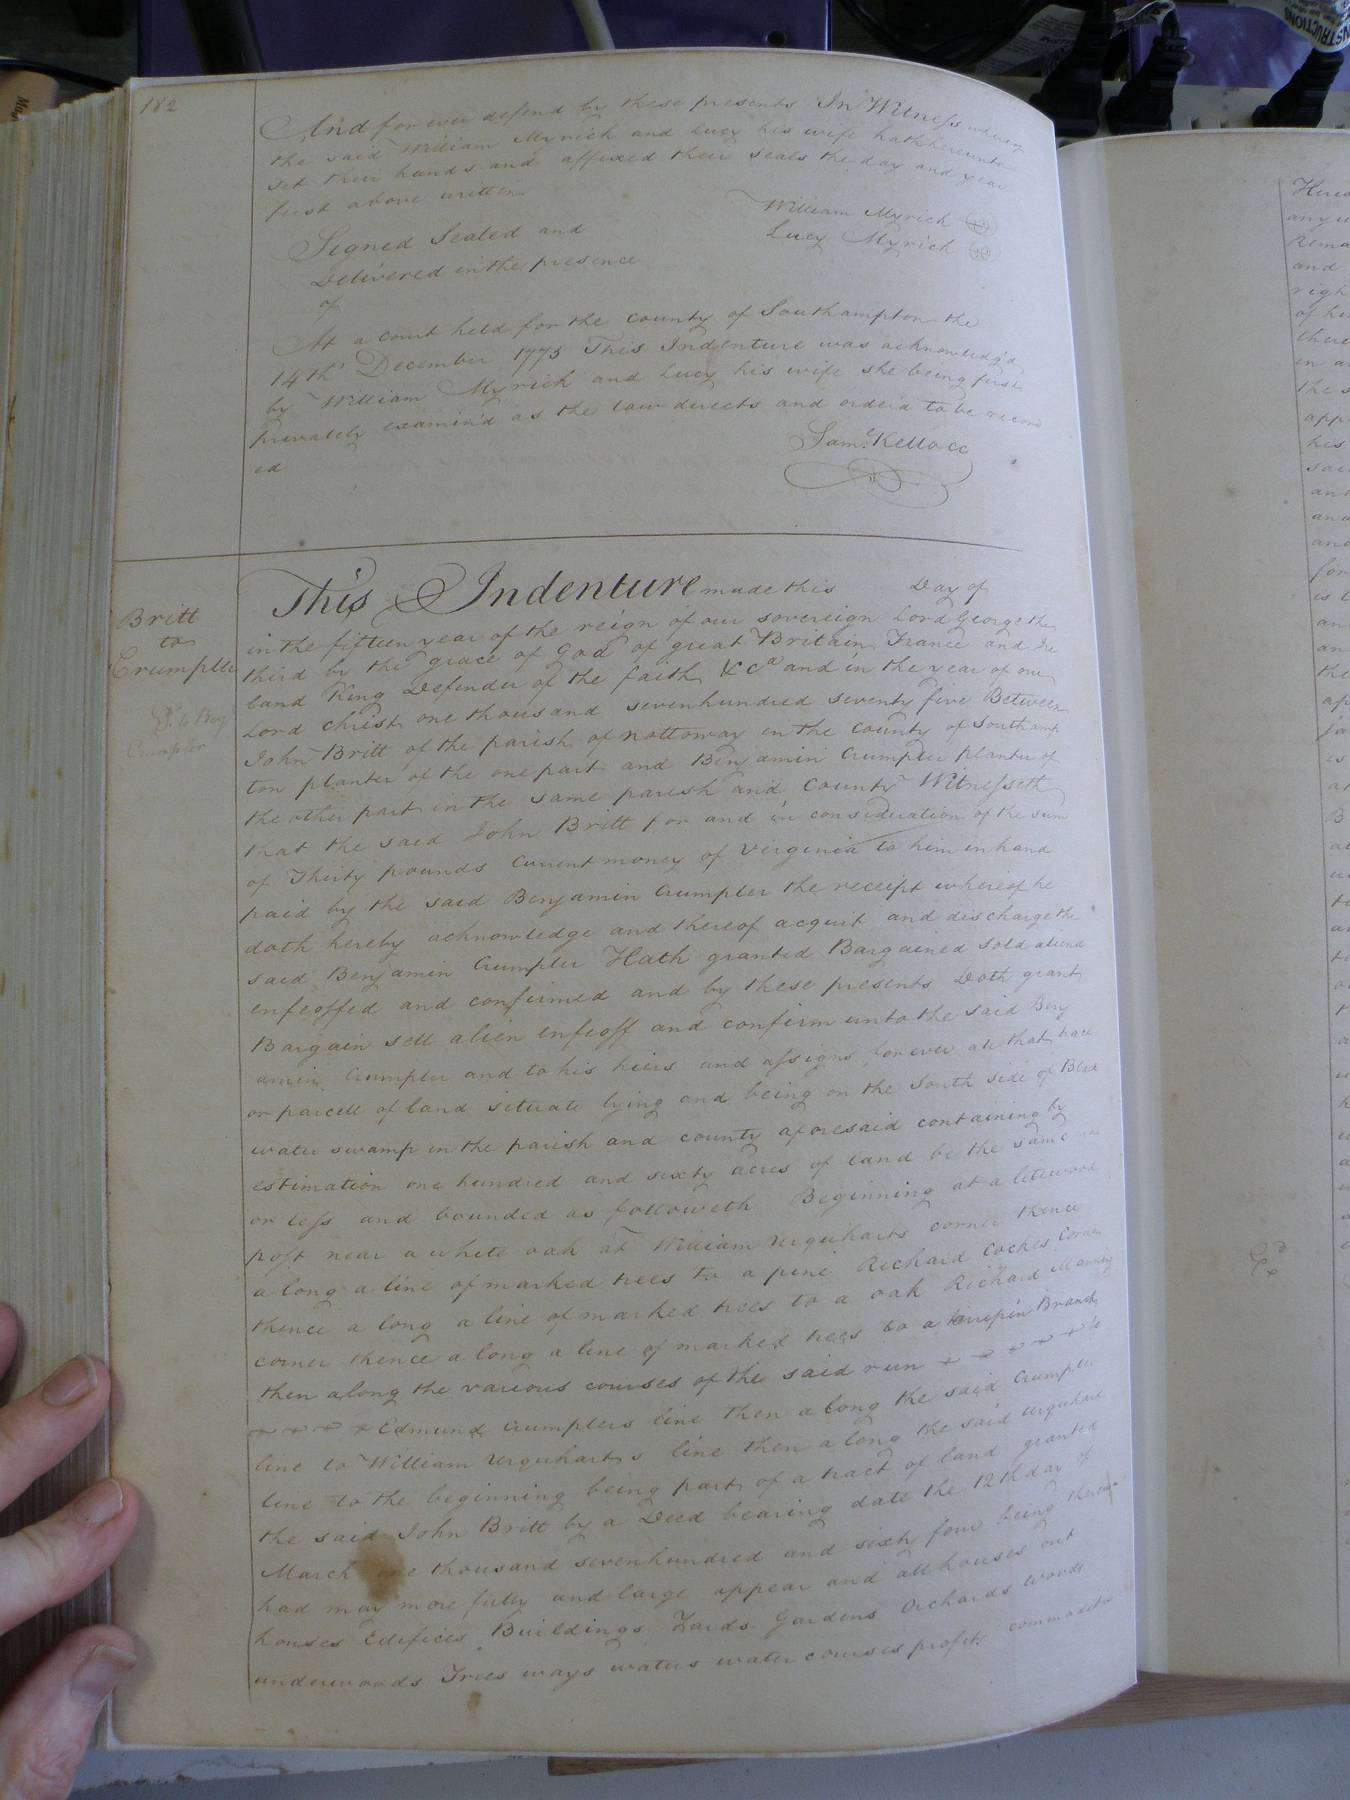 182
And for ever defend by these presents In Witness whereof
the said William Myrick and Lucy his wife hath hereunto
set their hands and affixed their seals the day and year
first above written
William Myrick
Lucy Myrick
Signed Sealed and
Delivered in the presence
of
At a court held for the county of Southampton the
14th December 1775 This Indenture was acknowledg'd
by William Myrick and Lucy his wife she being first
privately examin'd as the law directs and order'd to be record
ed
Saml. Kello CC
Britt
to
Crumpler
This Indenture made this Day of
in the fifteen year of the reign of our sovereign Lord George the
third by the grace of God of great Britain France and Ire
land King Defender of the faith &ca and in the year of our
Lord christ one thousand sevenhundred seventy five Between
John Britt of the parish of nottoway in the county of Southamp
ton planter of the one part and Benjamin Crumpler planter of
the other part in the same parish and County Witnesseth
that the said John Britt for and in consideration of the sum
of Thirty pounds Current money of Virginia to him in hand
paid by the said Benjamin Crumpler the receipt whereof he
doth hereby acknowledge and thereof acquit and discharge the
said Benjamin Crumpler Hath granted Bargained sold aliend
enfeoffed and confirmed and by these presents Doth grant
Bargain sell alien enfeoff and confirm unto the said Benj
amin Crumpler and to his heirs and assigns for ever all that tract
or parcell of land situate lying and being on the South side of Black
water swamp in the parish and county aforesaid containing by
estimation one hundred and sixty acres of land be the same more
or less and bounded as followeth Beginning at a litewood
post near a white oak at William Urquharts corner thence
a long a line of marked trees to a pine Richard Cockes Corner
thence a long a line of marked trees to a oak Richard
corner thence a long a line of marked trees to a Branch
then along the various courses of the said run
Edmund Crumplers line then along the said Crumpler
line to William Urquharts line then along the said Urquhart
line to the beginning being part of a tract of land granted
the said John Britt by a Deed bearing date the 12th day of
March one thousand sevenhundred and sixty four being thereunto
had may more fully and large appear and all houses out
houses Edifices Buildings Yards Gardens Orchards woods
underwoods Trees ways waters water courses profits commodities